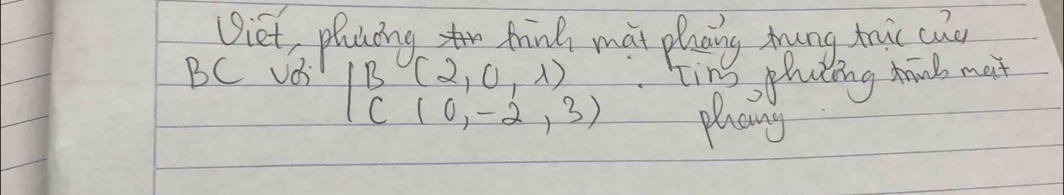 Viết phương trình mặt phẳng trung trực của
BC với B (2, 0, 1). Tìm phương trình mặt
C (0, -2, 3) phẳng